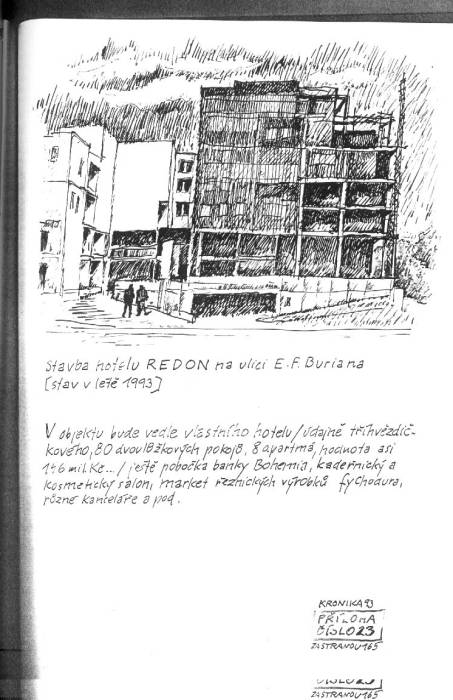 Stavba hotelu REDON na ulici E.F. Buriana
[stav v létě 1993]
V objektu bude vedle vlastního hotelu /údajně tříhvězdič-
kového, 80 dvoulůžkových pokojů, 8 apartmá, hodnota asi
146 mil. Kč.../ ještě pobočka banky Bohemia, kadeřnický a
kosmetický salon, market řeznických výrobků fy Chodura,
různé kanceláře a pod.
KRONIKA 93
PŘÍLOHA
ČÍSLO 23
ZA STRANOU 165
ČÍSLO 23
ZA STRANOU 165